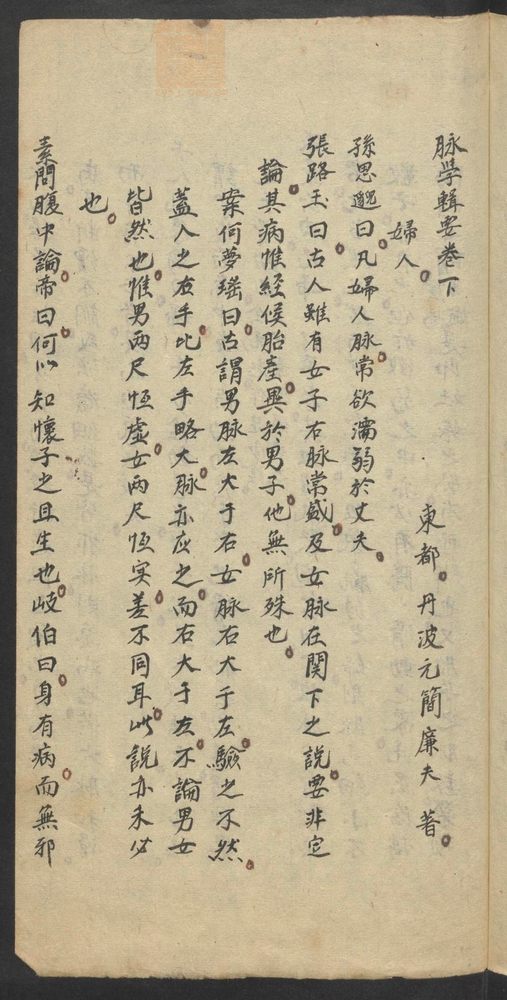 脉學輯要卷下
東都 丹波元簡廉夫 著
婦人
孫思邈曰凡婦人脉常欲濡弱於丈夫
張路玉曰古人雖有女子右脉常盛及女脉在関下之說要非定
論其病惟經候胎產異於男子他無所殊也
案何夢瑤曰古謂男脉左大于右女脉右大于左驗之不然
蓋人之右手比左手略大脉亦应之而右大于左不論男女
皆然也惟男兩尺恒虛女兩尺恒实差不同耳此說亦未必
也
素問腹中論帝曰何以知懷子之且生也岐伯曰身有病而無邪